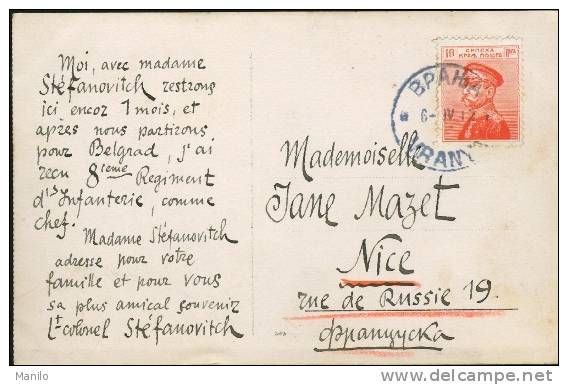 Moi, avec madame
Stéfanovitch restrons
ici encoz 1 mois, et
apzès nous partizons
pouz Belgrad, j'ai
zecu 8ième Regiment
d'Infanterie, comme
chef.
Madame Stéfanovitch
adresse pouz votre
famille et pouz vous
sa plus amical souveniz
Lt-colonel Stéfanovitch
10 СРПСКА Пара
КРАЉ. ПОШТА
ВРАЊА
6-IV 12
VRANYA
Mademoiselle
Jane Mazet
Nice
rue de Russie 19.
Француска
Manilo
delcampe.net